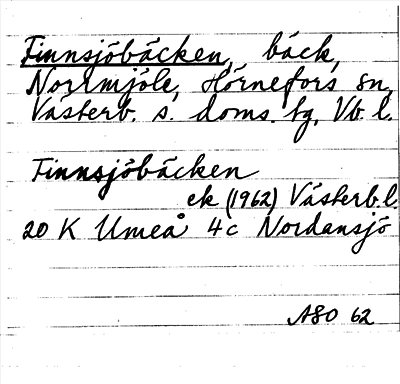 Finnsjöbäcken, bäck,
Norrmjöle, Hörnefors sn,
Västerb. s. doms. tg, Vb. l.
Finnsjöbäcken
ek (1962) Västerb.l.
20 K Umeå 4c Nordansjö
ASO 62